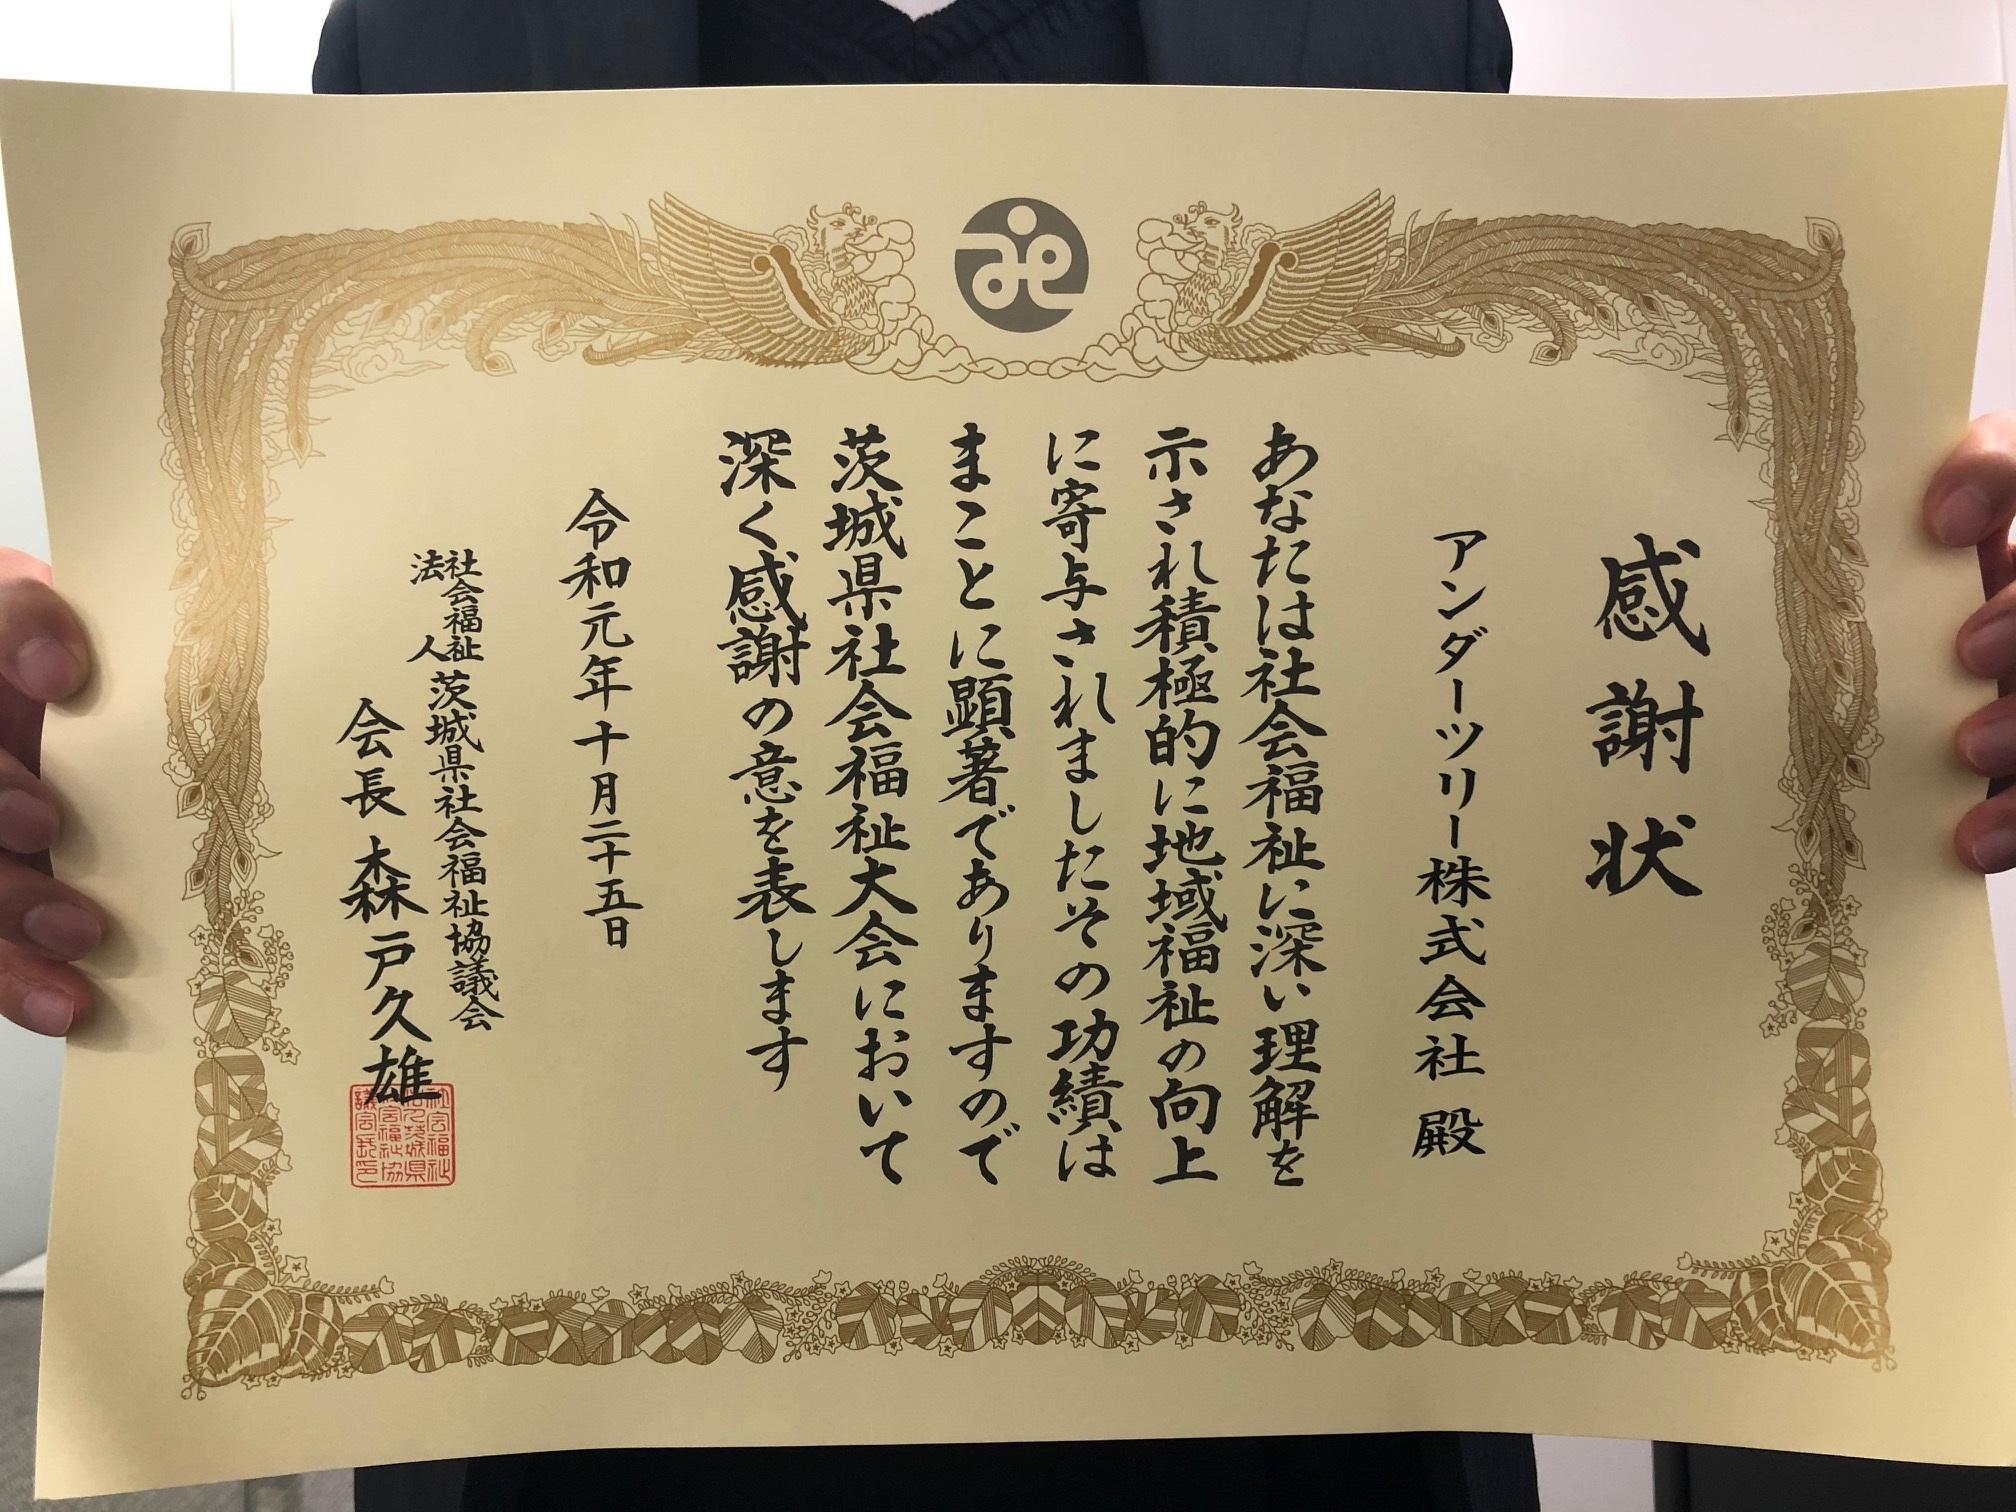 感謝状
アンダーツリー株式会社 殿
あなたは社会福祉に深い理解を
示され積極的に地域福祉の向上
に寄与されましたその功績は
まことに顕著でありますので
茨城県社会福祉大会において
深く感謝の意を表します
令和元年十月二十五日
社会福祉法人 茨城県社会福祉協議会
会長 森戸久雄